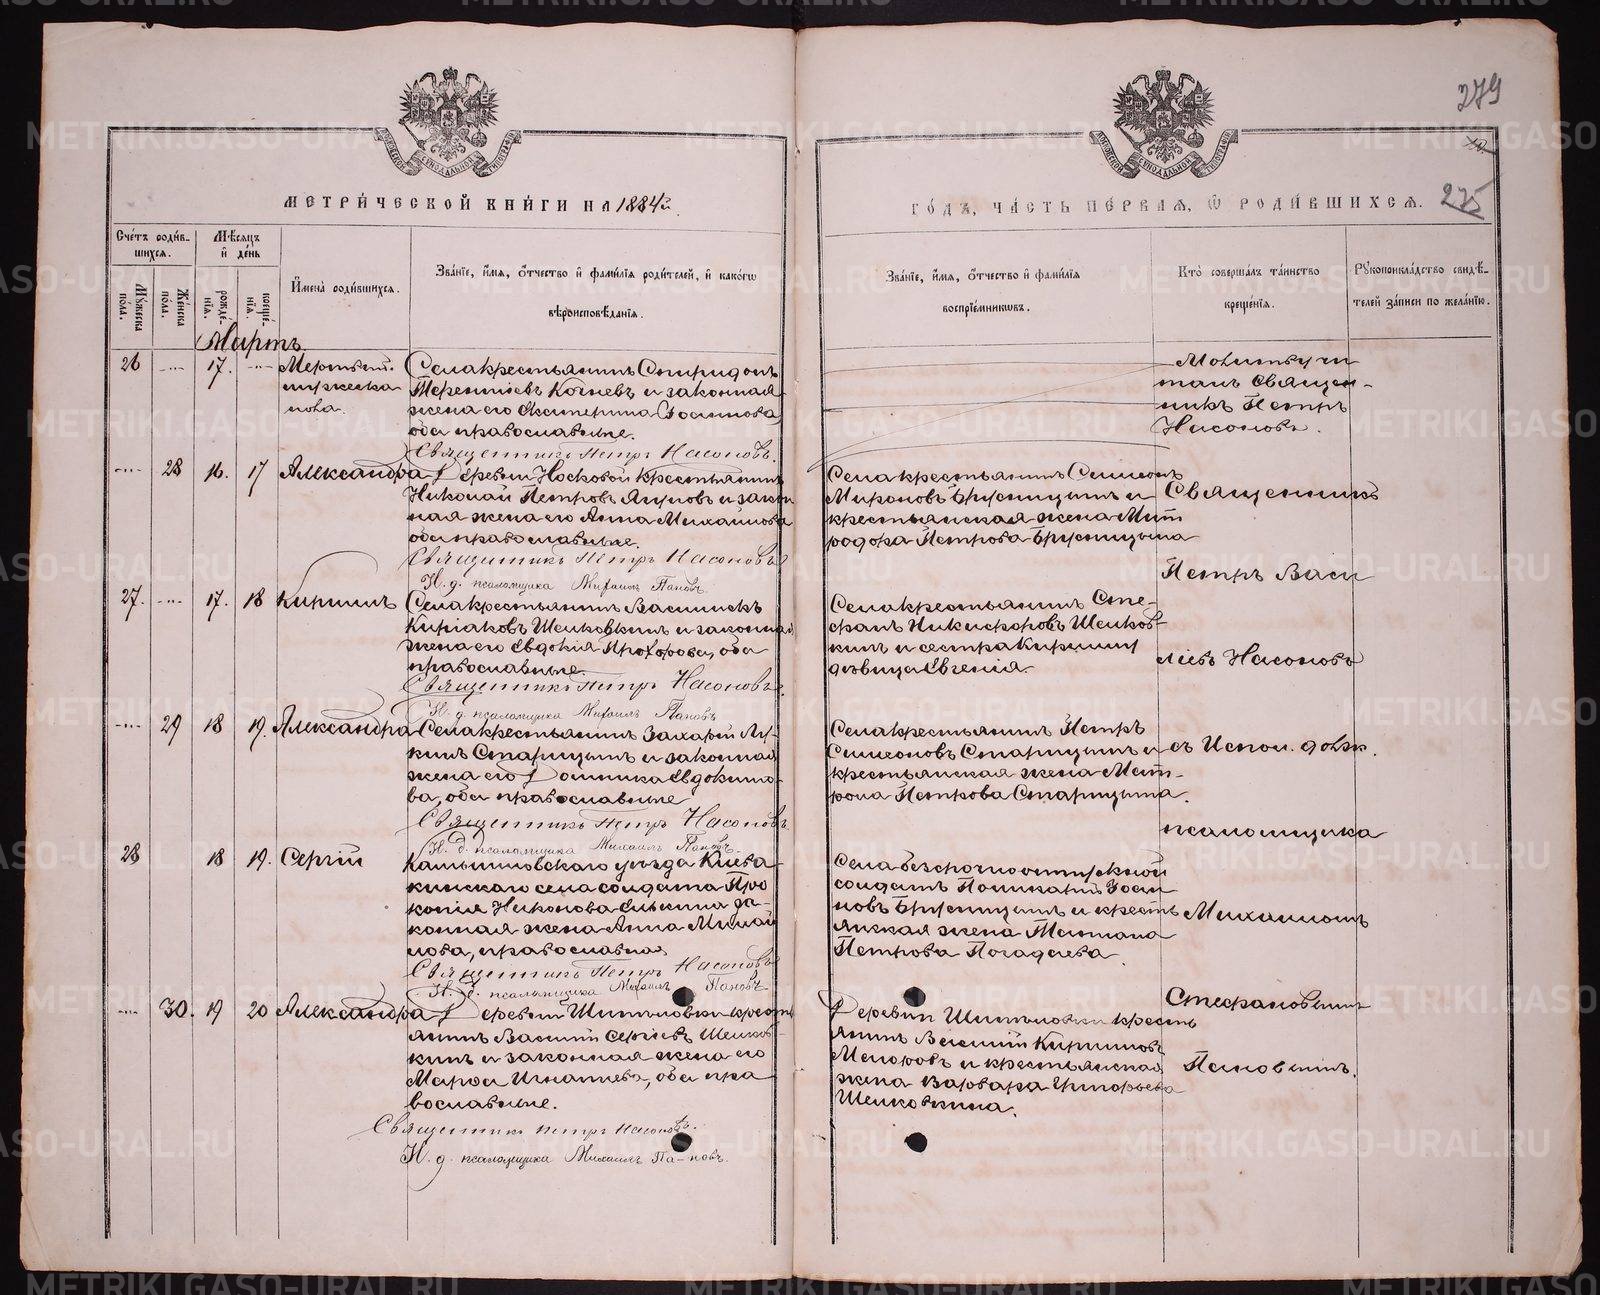 279
10.
МЕТРИ́ЧЕСКОЙ КНИ́ГИ НА 1884й
ГО́ДЪ, ЧА́СТЬ ПЕ́РВАЯ, Ѡ РОДИ́ВШИХСЯ. 275
Сче́тъ роди́в-
шихся.
Мѣ́сяцъ
и҆ де́нь
Мꙋ́жеска по́ла.
Же́нска по́ла.
рожде́-нїя.
креще́-нїя.
И҆мена̀ роди́вшихся.
Зва́нїе, и҆́мя, ѻ҆́тчество и҆ фами́лїя роди́телей, и҆ како́гѡ
вѣроисповѣ́данїя.
Зва́нїе, и҆́мя, ѻ҆́тчество и҆ фами́лїя
воспрїе́мниковъ.
Кто̀ соверша́лъ та́инство
креще́нїя.
Рꙋкоприкла́дство свидѣ́-
телей за́писи по жела́нїю.
Мартъ
26 — 17. — Мертвый
мужеска
пола.
Села крестьянинъ Спиридонъ
Терентіевъ и законная
жена его Екатерина
оба православные.
Священникъ Петръ Насоновъ.
Молитву чи
талъ Священ-
никъ Петръ
Насоновъ.
— 28 16. 17 Александра
Деревни Носковой крестьянинъ
Николай Петровъ Ягуновъ и закон
ная жена его Анна Михаилова
оба православные.
Священникъ Петръ Насоновъ
И. д. псаломщика Михаилъ Пановъ.
Села крестьянинъ Симеонъ
Мироновъ Брусницынъ и
крестьянская жена Мит
родора Петрова Брусницына
Священникъ
Петръ Васи
27. — 17. 18 Кириллъ
Села крестьянинъ Василискъ
Киріаковъ Шелковкинъ и законная
жена его Евдокія Прохорова, оба
православные.
Священникъ Петръ Насоновъ.
И. д. псаломщика Михаилъ Пановъ
Села крестьянинъ Сте-
фанъ Никифоровъ Шелков-
кинъ и сестра Кириллу
дѣвица Евгенія.
ліевъ Насоновъ
— 29 18 19. Александра
Села крестьянинъ Захарій Лу-
кинъ Старицынъ и законная
жена его Домника Евдокимо-
ва, оба православные
Священникъ Петръ Насоновъ
И. д. псаломщика Михаилъ Пановъ.
Села крестьянинъ Петръ
Симеоновъ Старицынъ и
крестьянская жена Мат-
рона Петрова Старицына.
съ Испол. долж.
псаломщика
28 18 19. Сергій
Камышловскаго уѣзда Клева-
кинскаго села солдата Про
копія Никонова Елькина за-
конная жена Анна Михаи
лова, православная
Священникъ Петръ Насоновъ
И. д. псаломщика Михаилъ Пановъ
Села безсрочноотпускной
солдатъ Поликарпъ Зоси
мовъ Брусницынъ и кресть
янская жена Татіана
Петрова Погадаева
Михаиломъ
— 30. 19 20 Александра
Деревни Шипыловки кресть
янинъ Василій Сергіевъ Шелков-
кинъ и законная жена его
Марфа Игнатіева, оба пра
вославные.
Священникъ Петръ Насоновъ.
И. д. псаломщика Михаилъ Пановъ.
Деревни Шипыловки кресть
янинъ Василій Кирилловъ
и крестьянская
жена Варвара Григорьева
Шелковкина.
Стефановымъ
Пановымъ.
METRIKI.GASO-URAL.RU